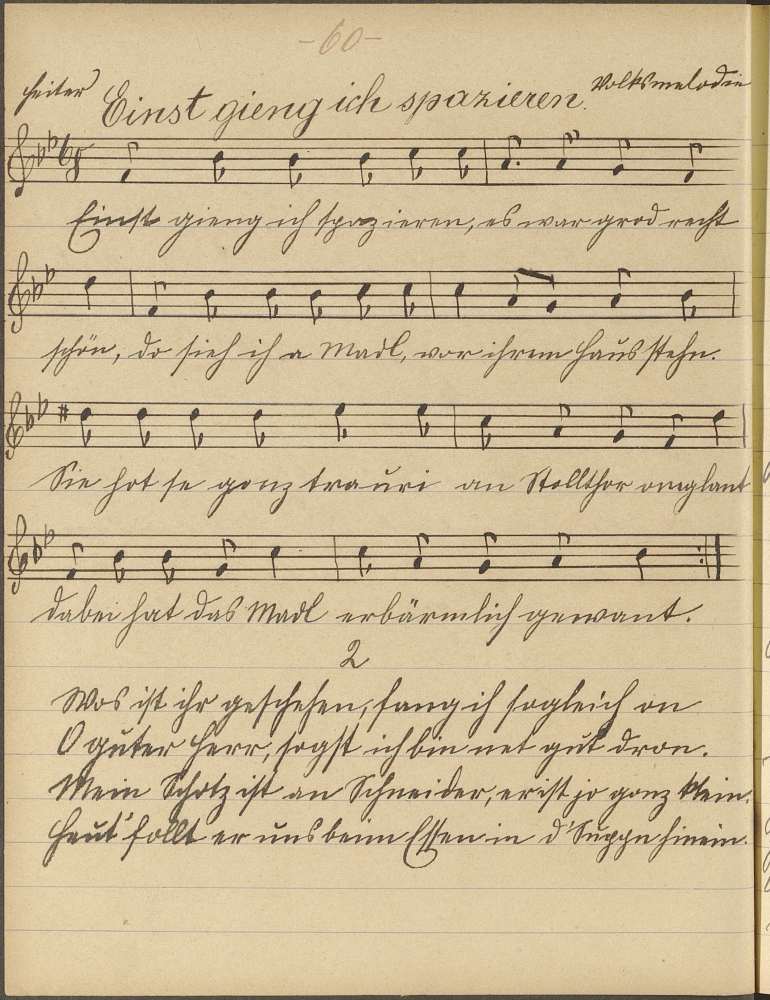 -60-
heiter Einst gieng ich spazieren. Volksmelodie
Einst gieng ich spazieren, es war grod recht
schön, do sieh ich a Madl, vor ihrem Haus stehn.
Sie hot se ganz trauri an Stollthor onglant
dabei hat das Madl erbärmlich gewant.
2
Wos ist ihr geschehen, fang ich sogleich on
O guter Herr, sogst ich bin net gut dron.
Mein Schotz ist an Schneider, er ist jo gonz klein.
Heut' follt er uns beim Essen in d'Suppe hinein.